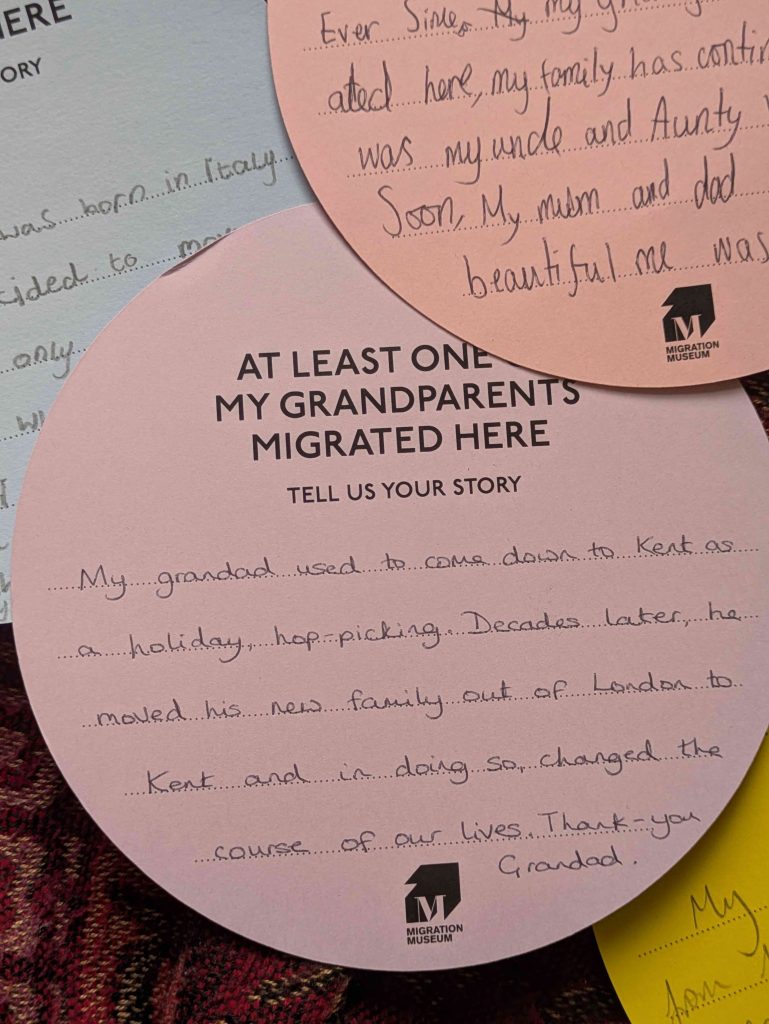 HERE
ORY
was born in Italy
cided to
only
Ever Since, My my
ated here, my family has
was my uncle and Aunty
Soon, My mum and dad
beautiful me was
MIGRATION
MUSEUM
AT LEAST ONE
MY GRANDPARENTS
MIGRATED HERE
TELL US YOUR STORY
My grandad used to come down to Kent as
a holiday, hop-picking. Decades later, he
moved his new family out of London to
Kent and in doing so, changed the
course of our lives. Thank-you
Grandad.
MIGRATION
MUSEUM
My